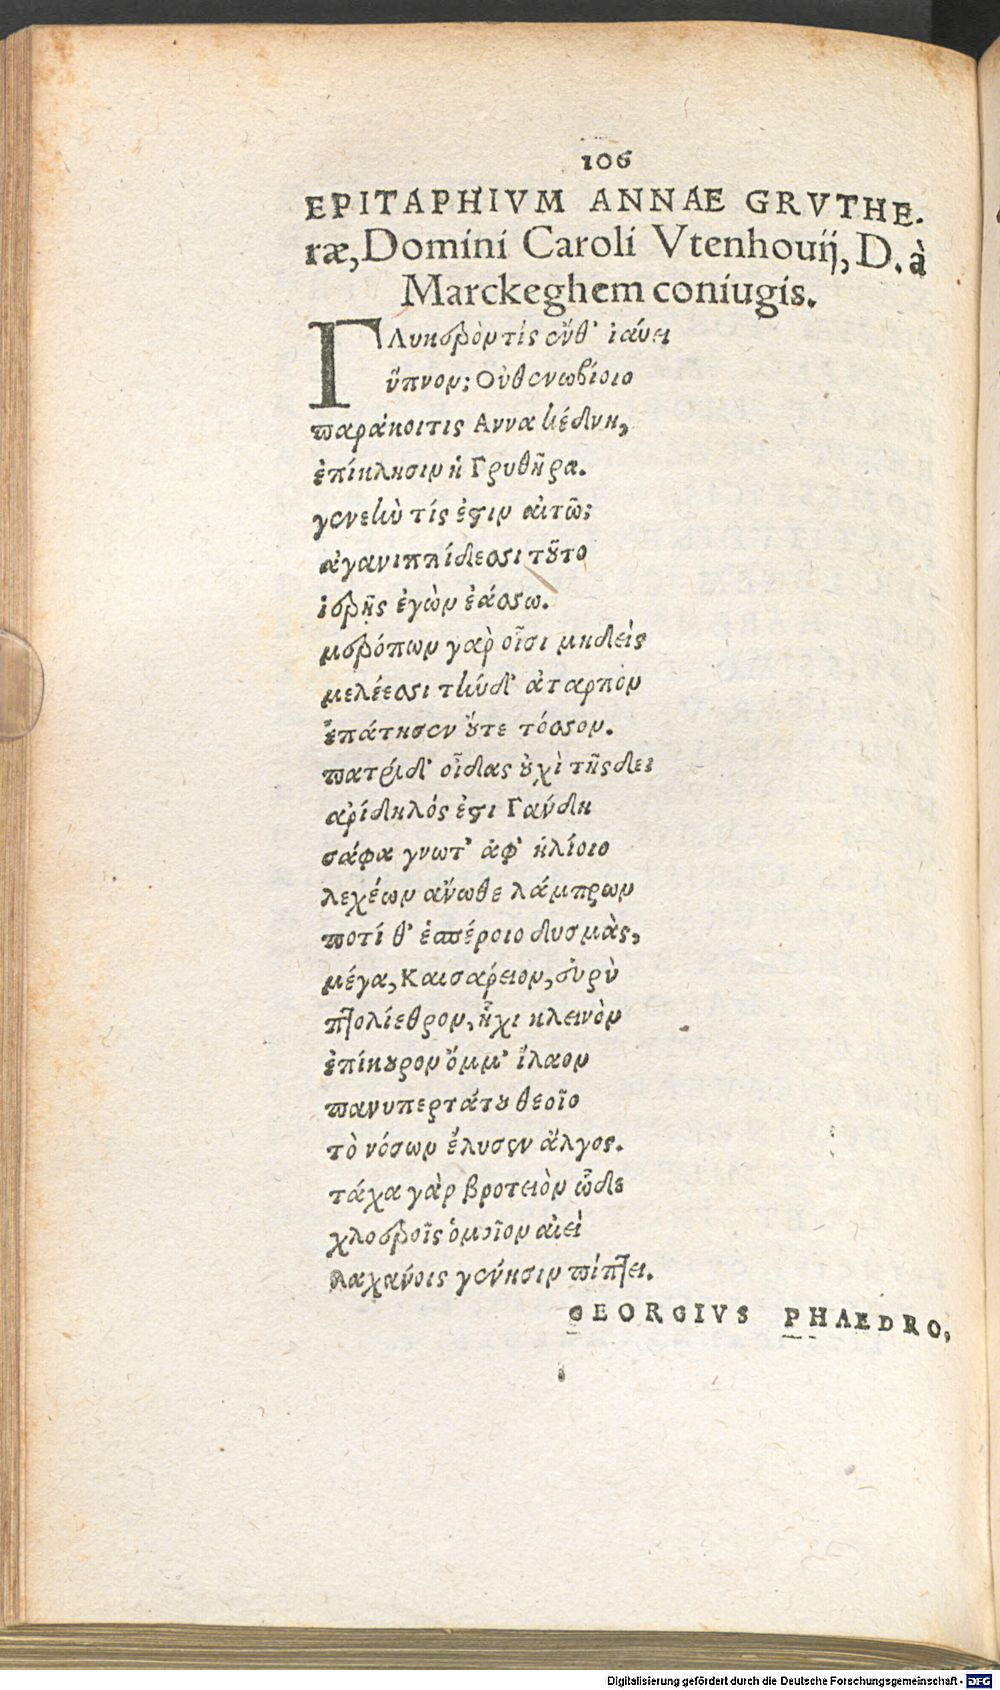 106
EPITAPHIVM ANNAE GRVTHE-
ræ, Domini Caroli Vtenhouij, D. à
Marckeghem coniugis.
Γλυκερὸν τίς ἔνθ' ἰαύει
ὕπνον; Οὐθενωβίοιο
παράκοιτις Αννα κέδνη,
ἐπίκλησιν ἡ Γρυθῆρα.
γενεὴν τίς ἐστιν αὐτῶ;
ἀγανιππίδεσσι τοῦτο
ἱερῇς ἐγὼν ἐάσσω.
μερόπων γὰρ οἷσι μηδεὶς
μελέεσσι τήνδ' ἀταρπὸν
ἐπάτησεν οὔτε τόσσον.
πατρίδ' οἶδας οὐχὶ τῆσδε;
ἀρίδηλός ἐστι Γαύδη
σάφα γνωτ' ἀφ' ἡλίοιο
λεχέων ἄνωθε λάμπρων
ποτί θ' ἑσπέροιο δυσμὰς,
μέγα, Καισάρειον, εὐρὺ
πτολίεθρον, ἧχι κλεινὸν
ἐπίκουρον ὄμμ' ἵλαον
πανυπερτάτου θεοῖο
τὸ νόσων ἔλυσεν ἄλγος.
τάχα γὰρ βροτειὸν ὧδε
χλοεροῖς ὁμοῖον αἰεὶ
λαχάνοις γένησιν πίπτει.
GEORGIVS PHAEDRO,
Digitalisierung gefördert durch die Deutsche Forschungsgemeinschaft - DFG